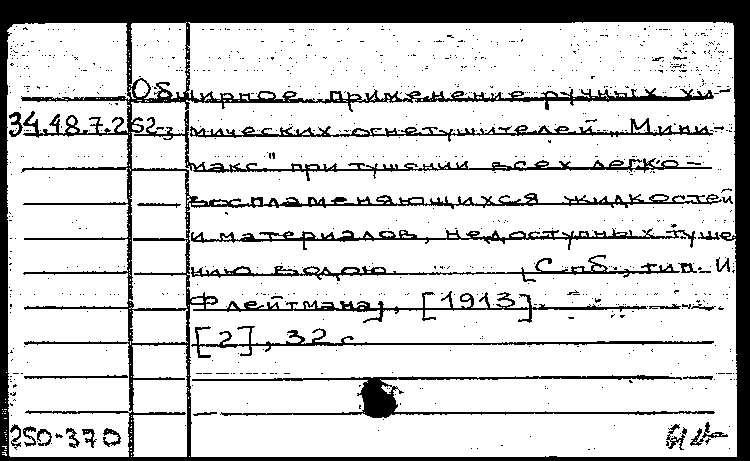 Обширное применение ручных хи-
34.48.7.252-3 мических огнетушителей „Мини-
макс." при тушении всех легко-
воспламеняющихся жидкостей
и материалов, недоступных туше
нию водою. [Спб., тип. И
Флейтмана], [1913].
[2], 32 с
250-370